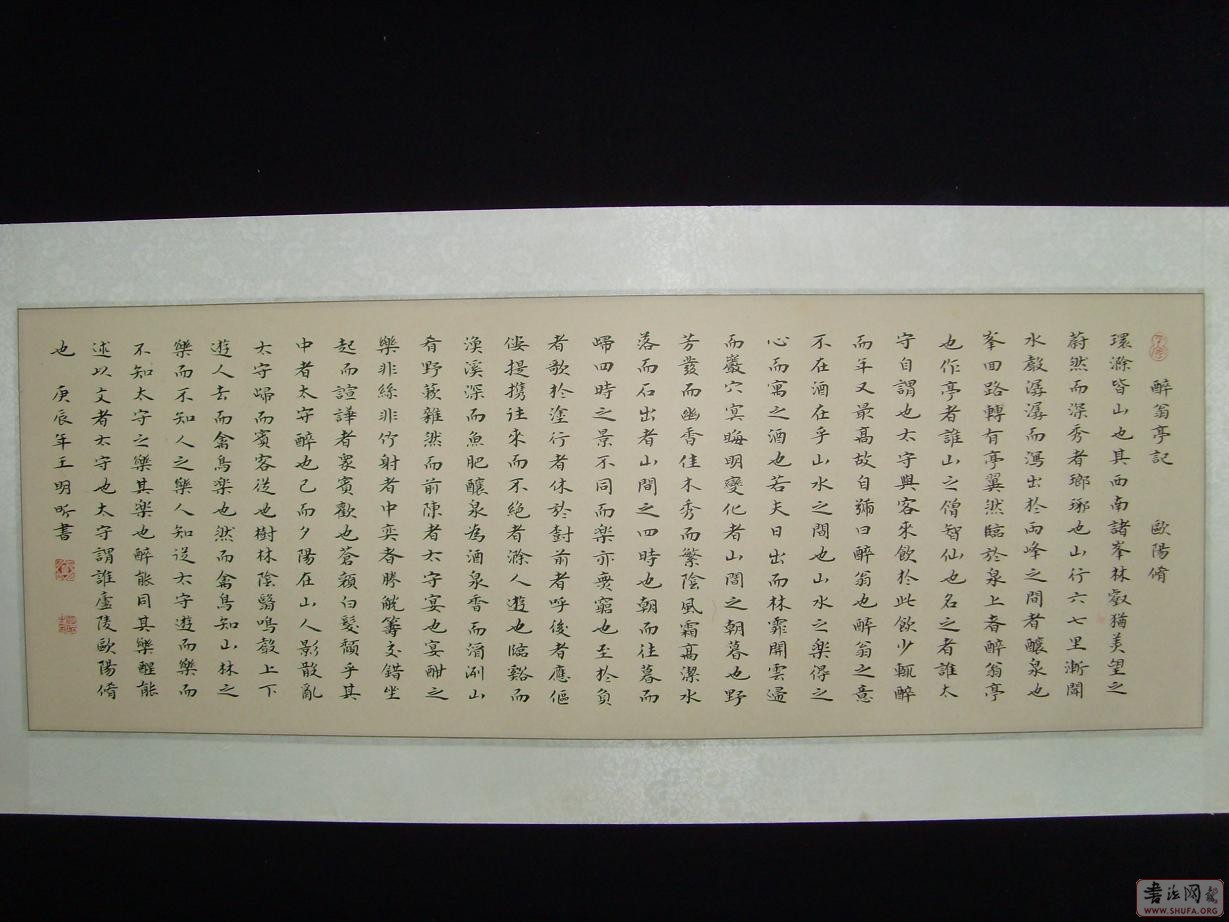 醉翁亭記　歐陽脩
環滁皆山也其西南諸峯林壑猶美望之
蔚然而深秀者瑯琊也山行六七里漸聞
水聲潺潺而瀉出於兩峰之間者釀泉也
峯回路轉有亭翼然臨於泉上者醉翁亭
也作亭者誰山之僧智仙也名之者誰太
守自謂也太守與客來飲於此飲少輒醉
而年又最高故自號曰醉翁也醉翁之意
不在酒在乎山水之間也山水之樂得之
心而寓之酒也若夫日出而林霏開雲歸
而巖穴冥晦明變化者山間之朝暮也野
芳發而幽香佳木秀而繁陰風霜高潔水
落而石出者山間之四時也朝而往暮而
歸四時之景不同而樂亦無窮也至於負
者歌於塗行者休於樹前者呼後者應傴
僂提攜往來而不絕者滁人遊也臨谿而
漁溪深而魚肥釀泉為酒泉香而酒洌山
肴野蔌雜然而前陳者太守宴也宴酣之
樂非絲非竹射者中奕者勝觥籌交錯坐
起而諠譁者眾賓歡也蒼顏白髮頹乎其
中者太守醉也已而夕陽在山人影散亂
太守歸而賓客從也樹林陰翳鳴聲上下
遊人去而禽鳥樂也然而禽鳥知山林之
樂而不知人之樂人知從太守遊而樂而
不知太守之樂其樂也醉能同其樂醒能
述以文者太守也太守謂誰廬陵歐陽脩
也　庚辰年王明昕書
書法网
WWW.SHUFA.ORG